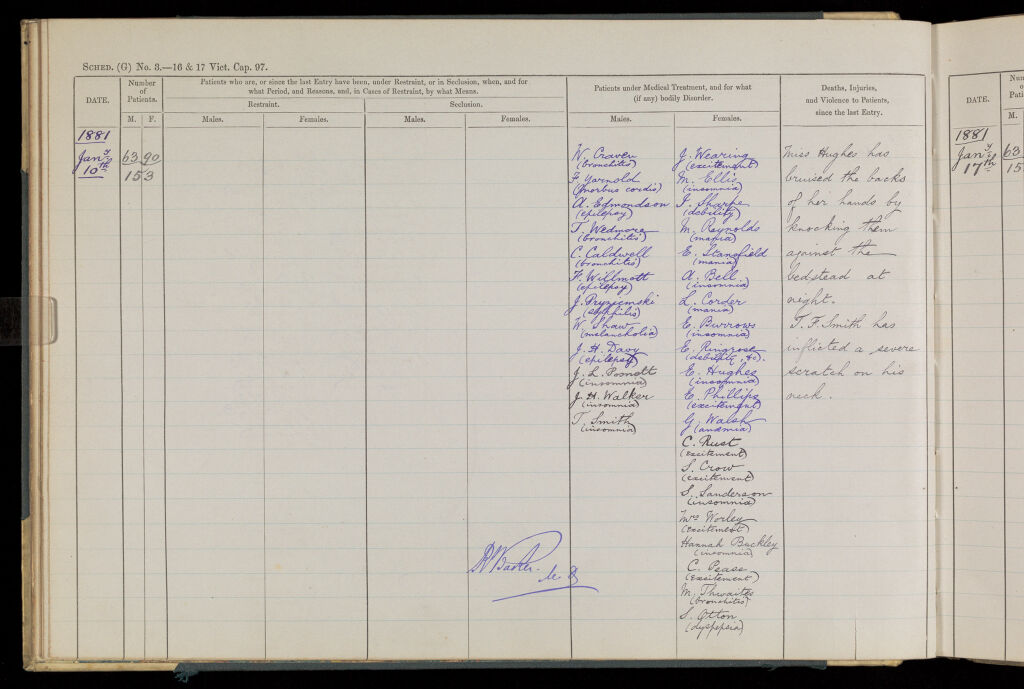 SCHED. (G) No. 3.—16 & 17 Vict. Cap. 97.
DATE.
Number
of
Patients.
M. F.
Patients who are, or since the last Entry have been, under Restraint, or in Seclusion, when, and for
what Period, and Reasons, and, in Cases of Restraint, by what Means.
Restraint.
Seclusion.
Males.
Females.
Males.
Females.
Patients under Medical Treatment, and for what
(if any) bodily Disorder.
Males.
Females.
Deaths, Injuries,
and Violence to Patients,
since the last Entry.
1881
Jany
10th
63 90
153
W. Craven
(bronchitis)
F. Yarnold
(morbus cordis)
A. Edmondson
(epilepsy)
T. Wedmore
(bronchitis)
C. Caldwell
(bronchitis)
F. Willmott
(epilepsy)
J. Pryziemski
(syphilis)
W. Shaw
(melancholia)
J. H. Davy
(epilepsy)
J. L.
(insomnia)
J. H. Walker
(insomnia)
T. Smith
(insomnia)
J. Wearing
(excitement)
M. Ellis
(insomnia)
I. Sharpe
(debility)
M. Reynolds
(mania)
E. Stansfield
(mania)
A. Bell
(insomnia)
L. Corder
(mania)
E. Burrows
(insomnia)
E. Ringrose
(debility, &c).
E. Hughes
(insomnia)
E. Phillips
(excitement)
G. Walsh
(anæmia)
C. Rust
(excitement)
S. Crow
(excitement)
S. Sanderson
(insomnia)
Mrs Worley
(excitement)
Hannah Buckley
(insomnia)
C. Pease
(excitement)
M. Thwaites
(bronchitis)
S. Otton
(dyspepsia)
Miss Hughes has
bruised the backs
of her hands by
knocking them
against the
bedstead at
night.
T. F. Smith has
inflicted a severe
scratch on his
neck.
R Baker. M. D
DATE.
M.
1881
Jany
17th
63
15